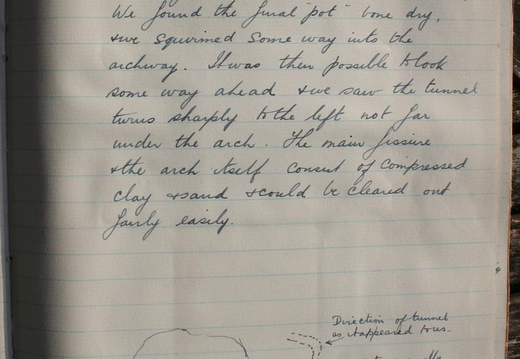 We found the final "pot" bone dry,
& we squirmed some way into the
archway. It was then possible to look
some way ahead & we saw the tunnel
turns sharply to the left not far
under the arch. The main fissure
& the arch itself consist of compressed
clay & sand & could be cleared out
fairly easily.
Direction of tunnel
as it appeared to us.